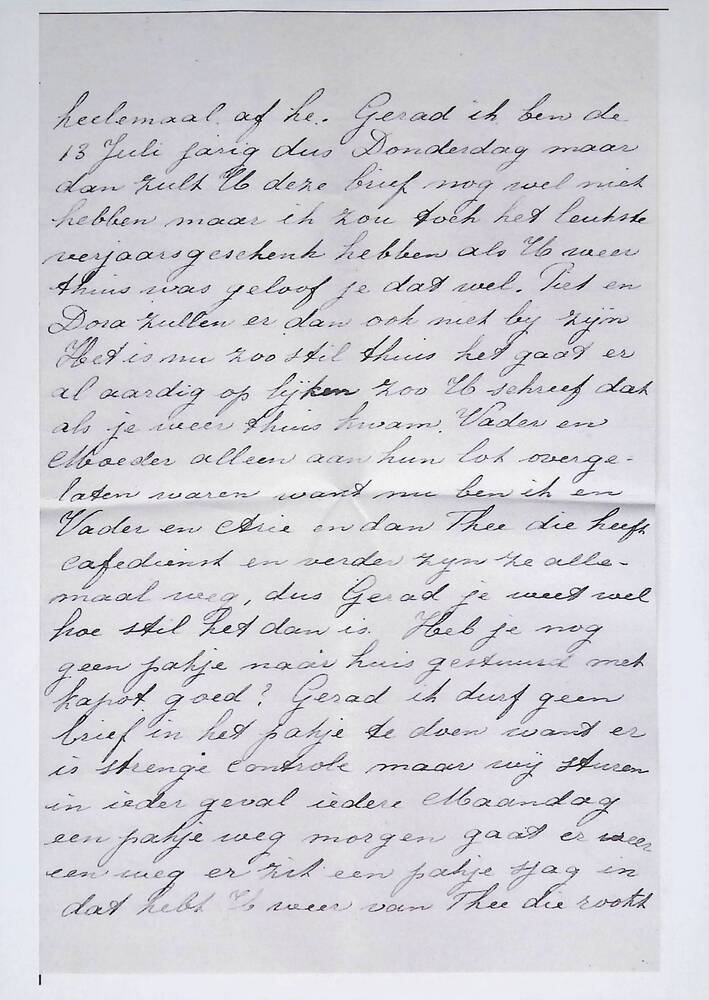 heelemaal af he. Gerad ik ben de
13 Juli jarig dus Donderdag maar
dan zult U deze brief nog wel niet
hebben maar ik zou toch het leukste
verjaarsgeschenk hebben als U weer
thuis was geloof je dat wel. Piet en
Dora zullen er dan ook niet by zijn
Het is nu zoo stil thuis het gaat er
al aardig op lijken zoo U schreef dat
als je weer thuis kwam. Vader en
Moeder alleen aan hun lot overge-
laten waren want nu ben ik en
Vader en Arie en dan Thee die heeft
cafedienst en verder zyn ze alle-
maal weg, dus Gerad je weet wel
hoe stil het dan is. Heb je nog
geen pakje naar huis gestuurd met
kapot goed? Gerad ik durf geen
brief in het pakje te doen want er
is strenge controle maar wij sturen
in ieder geval iedere Maandag
een pakje weg morgen gaat er weer
een weg er zit een pakje sjag in
dat hebt U weer van Thee die rookt